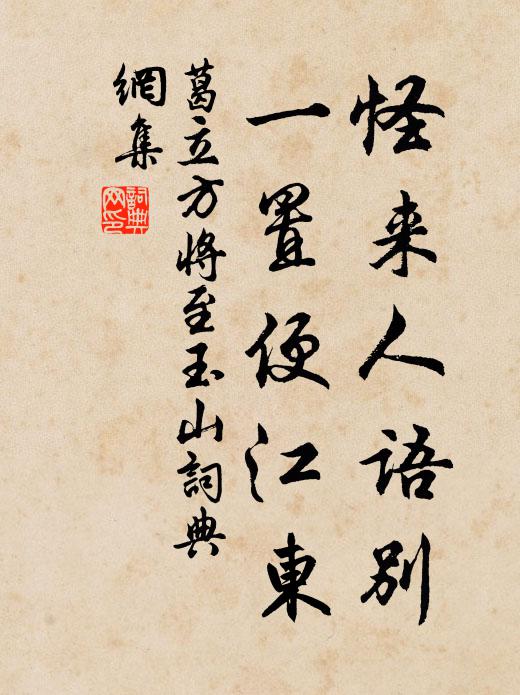 怪来人语别
一置便江東
葛立方将至玉山詞典
網集
詞典
网印